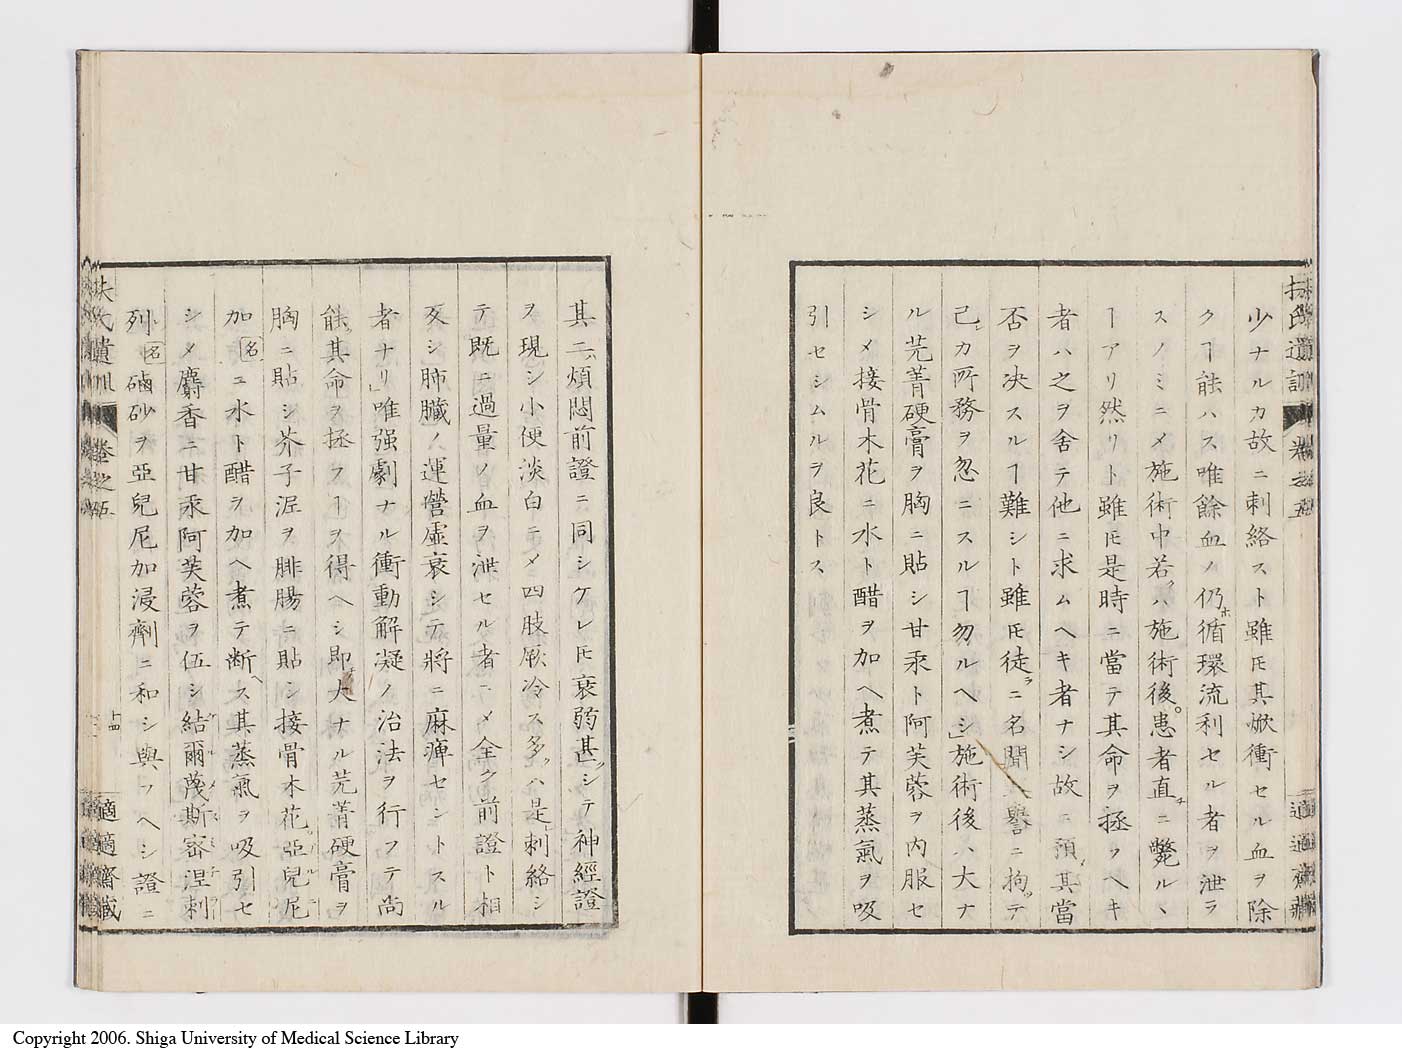 扶氏遺訓 卷之五 適適齋藏
少ナルカ故ニ刺絡スト雖𪜈其焮衝セル血ヲ除
クヿ能ハス唯餘血ノ仍ホ循環流利セル者ヲ泄ラ
スノミニメ施術中若クハ施術後患者直チニ斃ルヽ
ヿアリ然リト雖𪜈是時ニ當テ其命ヲ拯フヘキ
者ハ之ヲ舍テ他ニ求ムヘキ者ナシ故ニ預メ其當
否ヲ决スルヿ難シト雖𪜈徒ラニ名聞ニ拘ッテ
己レカ所務ヲ忽ニスルヿ勿ルヘシ」施術後ハ大ナ
ル芫菁硬膏ヲ胸ニ貼シ甘汞ト阿芙蓉ヲ内服セ
シメ接骨木花ニ水ト醋ヲ加ヘ煮テ其蒸氣ヲ吸
引セシムルヲ良トス
其二、煩悶前證ニ同シケレ𪜈衰弱甚シッテ神經證
ヲ現シ小便淡白ニメ四肢厥冷ス多クハ是レ刺絡シ
テ既ニ過量ノ血ヲ泄セル者ニメ全ク前證ト相
反シ肺臟ノ運營虚衰シテ將ニ麻痺セントスル
者ナリ」唯强劇ナル衝動解凝ノ治法ヲ行フテ尚
能ク其命ヲ拯フヿヲ得ヘシ即チ大ナル芫菁硬膏ヲ
胸ニ貼シ芥子泥ヲ腓腸ニ貼シ接骨木花亞兒尼
加名ニ水ト醋ヲ加ヘ煮テ断ヘス其蒸氣ヲ吸引セ
シメ麝香ニ甘汞阿芙蓉ヲ伍シ結爾蔑斯密涅刺
列名磠砂ヲ亞兒尼加浸劑ニ和シ與フヘシ證ニ
扶氏遺訓 卷之五 十四 適適齋藏
Copyright 2006. Shiga University of Medical Science Library